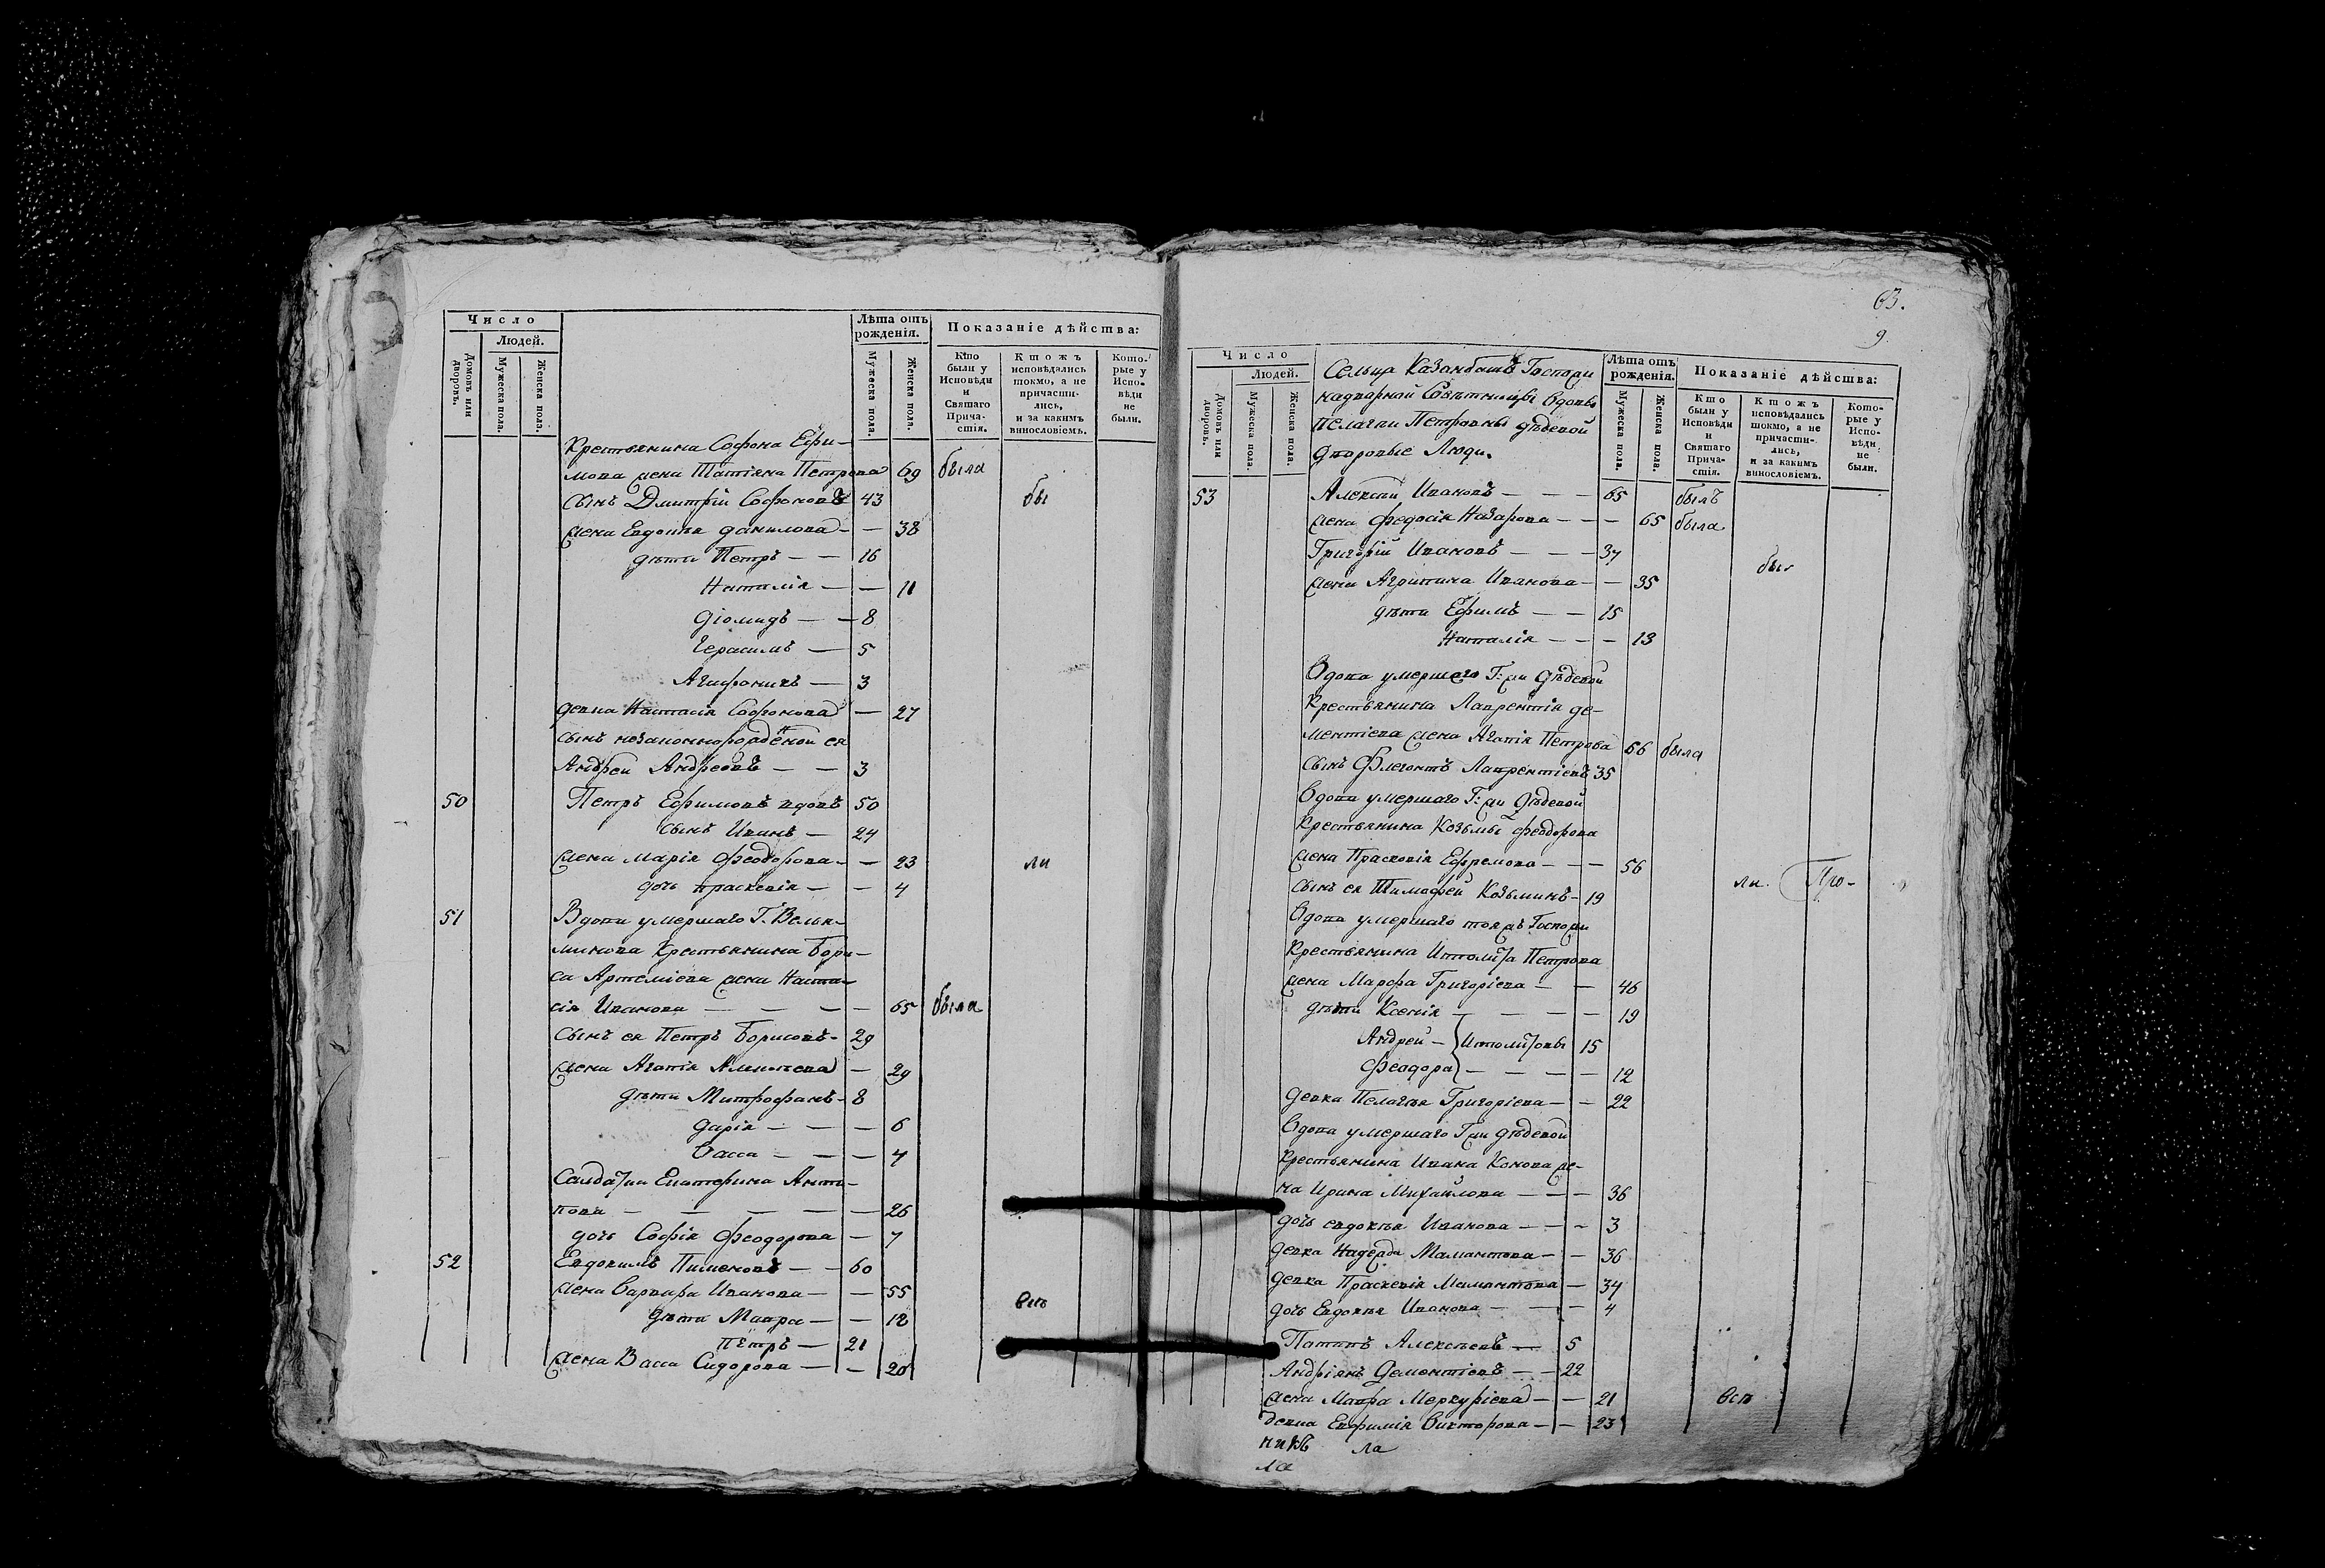 Число
Людей.
Домовъ или дворовъ.
Мужеска пола.
Женска пола.
Лѣта отъ рожденія.
Мужеска пола.
Женска пола.
Показаніе дѣйства:
Кто были у Исповѣди и Святаго Прича-стія.
Ктожъ исповѣдались токмо, а не причасти-лись, и за какимъ винословіемъ.
Кото-рые у Испо-вѣди не были.
Крестьянина Софона Ефи-
мова жена Татіяна Петрова 69 была
сынъ Дмитрій Софоновъ 43 бы
жена Евдокѣя Данилова — — 38
дѣти Петръ — — 16
Наталія — — 11
Діомидъ — — 8
Герасимъ — 5
Агафоникъ — 3
девка Настасія Софонова — 27
сынъ незаконнорожденой ея
Андрей Андреевъ — — 3
50 Петръ Ефимовъ вдовъ 50
сынъ Иванъ — 24
жена Марія Феодорова — — 23 ли
дочь Праскевія — — 4
51 Вдова умершаго Г. Вельи-
минова крестьянина Бори-
са Артеміева жена Наста-
сія Иванова — — — — 65 была
сынъ ея Петръ Борисовъ - 29
жена Агапія — 29
дѣти Митрофанъ - 8
Дарія — — — 6
Васса — — — 4
Салдатка Екатерина Анти-
пова — — — — — 26
дочь Софія Феодорова — 7
52 Евдокимъ Пименовъ — — 60
жена Варвара Иванова — — 55 всѣ
дѣти Мавра — — 12
Петръ — 21
жена Васса Сидорова — — 20
63.
9
Число
Людей.
Домовъ или дворовъ.
Мужеска пола.
Женска пола.
Сельца Казамбашъ Госпожи
надворной Совѣтницы вдовы
Пелагеи Петровны Дѣдевой
Дворовые Люди.
Лѣта отъ рожденія.
Мужеска пола.
Женска пола.
Показаніе дѣйства:
Кто были у Исповѣди и Святаго Прича-стія.
Ктожъ исповѣдались токмо, а не причасти-лись, и за какимъ винословіемъ.
Кото-рые у Испо-вѣди не были.
53 Алексѣй Ивановъ — — — 65 былъ
жена Феодосія Назарова — — — 65 была
Григорій Ивановъ — — — 37 бы
жена Агрипина Иванова — — 35
дѣти Ефимъ — — 15
Наталія — — — 13
Вдова умершаго Г:жи Дѣдевой
крестьянина Лаврентія Де-
ментіева жена Агапія Петрова 66 была
сынъ Флегонтъ Лаврентіевъ 35
Вдова умершаго Г:жи Дѣдевой
крестьянина Козьмы Феодорова
жена Прасковія Ефремова — — — 56 ли. Про-
сынъ ея Тимофей Козьминъ — 19
Вдова умершаго тояжъ Госпожи
крестьянина Иполита Петрова
жена Марфа Григоріева — — 46
дѣти Ксенія — — — — 19
Андрей — Иполитовы 15
Феодора — — — — 12
девка Пелагѣя Григоріева — — 22
Вдова умершаго Г:жи Дѣдевой
крестьянина Ивана Конова же-
на Ирина Михайлова — — — 36
дочь Евдокѣя Иванова — — — 3
девка Надежда Мамантова — — 36
девка Праскевія Мамантова — 34
дочь Евдокѣя Иванова — — — 4
Патапъ Алексѣевъ — 5
Андріянъ Дементіевъ — — 22
жена Мавра Меркуріева — — 21 всѣ
девка Евфимія Викторова — — 23
никъ ла
ла